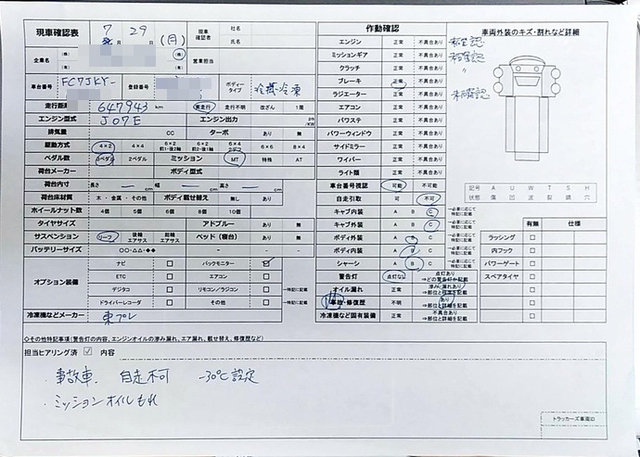 現車確認表
7月29日 (月)
現車確認者 社名
氏名
企業名
営業担当
車台番号 FC7JKY-
登録番号
ボディータイプ 冷蔵冷凍
走行距離 647943 km 実走行 走行不明 改ざん 1重
エンジン型式 J07E エンジン出力 ps kw
排気量 CC ターボ あり 無
駆動方式 4×2 4×4 6×2 前1・後2軸 6×2 前2・後1軸 6×4 6×6 8×4
ペダル数 3ペダル 2ペダル ミッション MT 特殊 AT
荷台メーカー ボディ型式
荷台内寸 長さ cm 幅 cm 高さ cm
荷台床材質 木・金属・その他 ボディ載せ替え 無し あり
ホイールナット数 4個 5個 6個 8個 10個
タイヤサイズ アドブルー あり 無
サスペンション リーフ 後輪エアサス 総輪エアサス ベッド（寝台） あり 無
バッテリーサイズ ボディ内装
オプション装備
ナビ □ バックモニター ☑
ETC □ エアコン □
デジタコ □ リモコン／ラジコン □ →特記に記載
ドライブレコーダー □ その他 □ →特記に記載
冷凍機などメーカー 東プレ
作動確認
エンジン 正常 不具合あり 未確認
ミッションギア 正常 不具合あり 未確認
クラッチ 正常 不具合あり 〃
ブレーキ 正常 不具合あり
ラジエーター 正常 不具合あり 未確認
エアコン 正常 不具合あり
パワステ 正常 不具合あり
パワーウィンドウ 正常 不具合あり
サイドミラー 正常 不具合あり
ワイパー 正常 不具合あり
ライト類 正常 不具合あり
車台番号視認 可能 不可能
自走引取 可 不可
キャブ内装 A B C
キャブ外装 A B C
ボディ外装 A B C
ボディ内装 A B C
シャーシ A B C
警告灯 点灯なし 点灯あり
オイル漏れ 正常 滲み、漏れあり →部位と詳細を記載
事故・修復歴 不明 あり →部位と詳細を記載
冷凍機など固有装備 正常 不具合あり →部位と詳細を記載
車両外装のキズ・割れなど詳細
記号 A U W T S H
状態 傷 凹 波 裂 錆 穴
有無 仕様
ラッシング □
内フック □
パワーゲート □
スペアタイヤ □
◇その他特記事項（警告灯の内容、エンジンオイルの滲み漏れ、エア漏れ、載せ替え、修復歴など）
担当ヒアリング済 ☑ 内容
・事故車、自走不可 -30℃設定
・ミッションオイルもれ
トラッカーズ車両ID